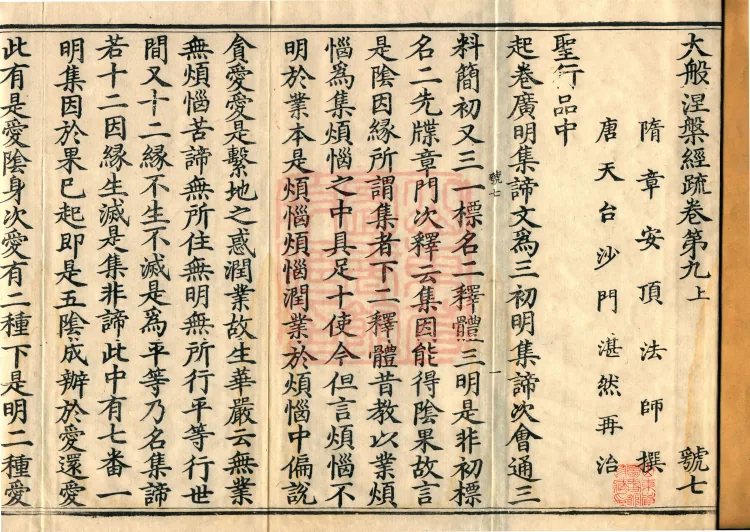 大般涅槃經疏卷第九上 號七
隋章安頂法師撰
唐天台沙門湛然再治
聖行品中
起卷廣明集諦文爲三初明集諦次會通三
料簡初又三一標名二釋體三明是非初標
名二先牒章門次釋云集因能得陰果故言
是陰因緣所謂集者下二釋體昔教以業煩
惱爲集煩惱之中具足十使今但言煩惱不
明於業本是煩惱煩惱潤業於煩惱中偏說
貪愛愛是繫地之惑潤業故生華嚴云無業
無煩惱苦諦無所住無明無所行平等行世
間又十二緣不生不滅是爲平等乃名集諦
若十二因緣生滅是集非諦此中有七番一
明集因於果已起即是五陰成辦於愛還愛
此有是愛陰身次愛有二種下是明二種愛
號七
一